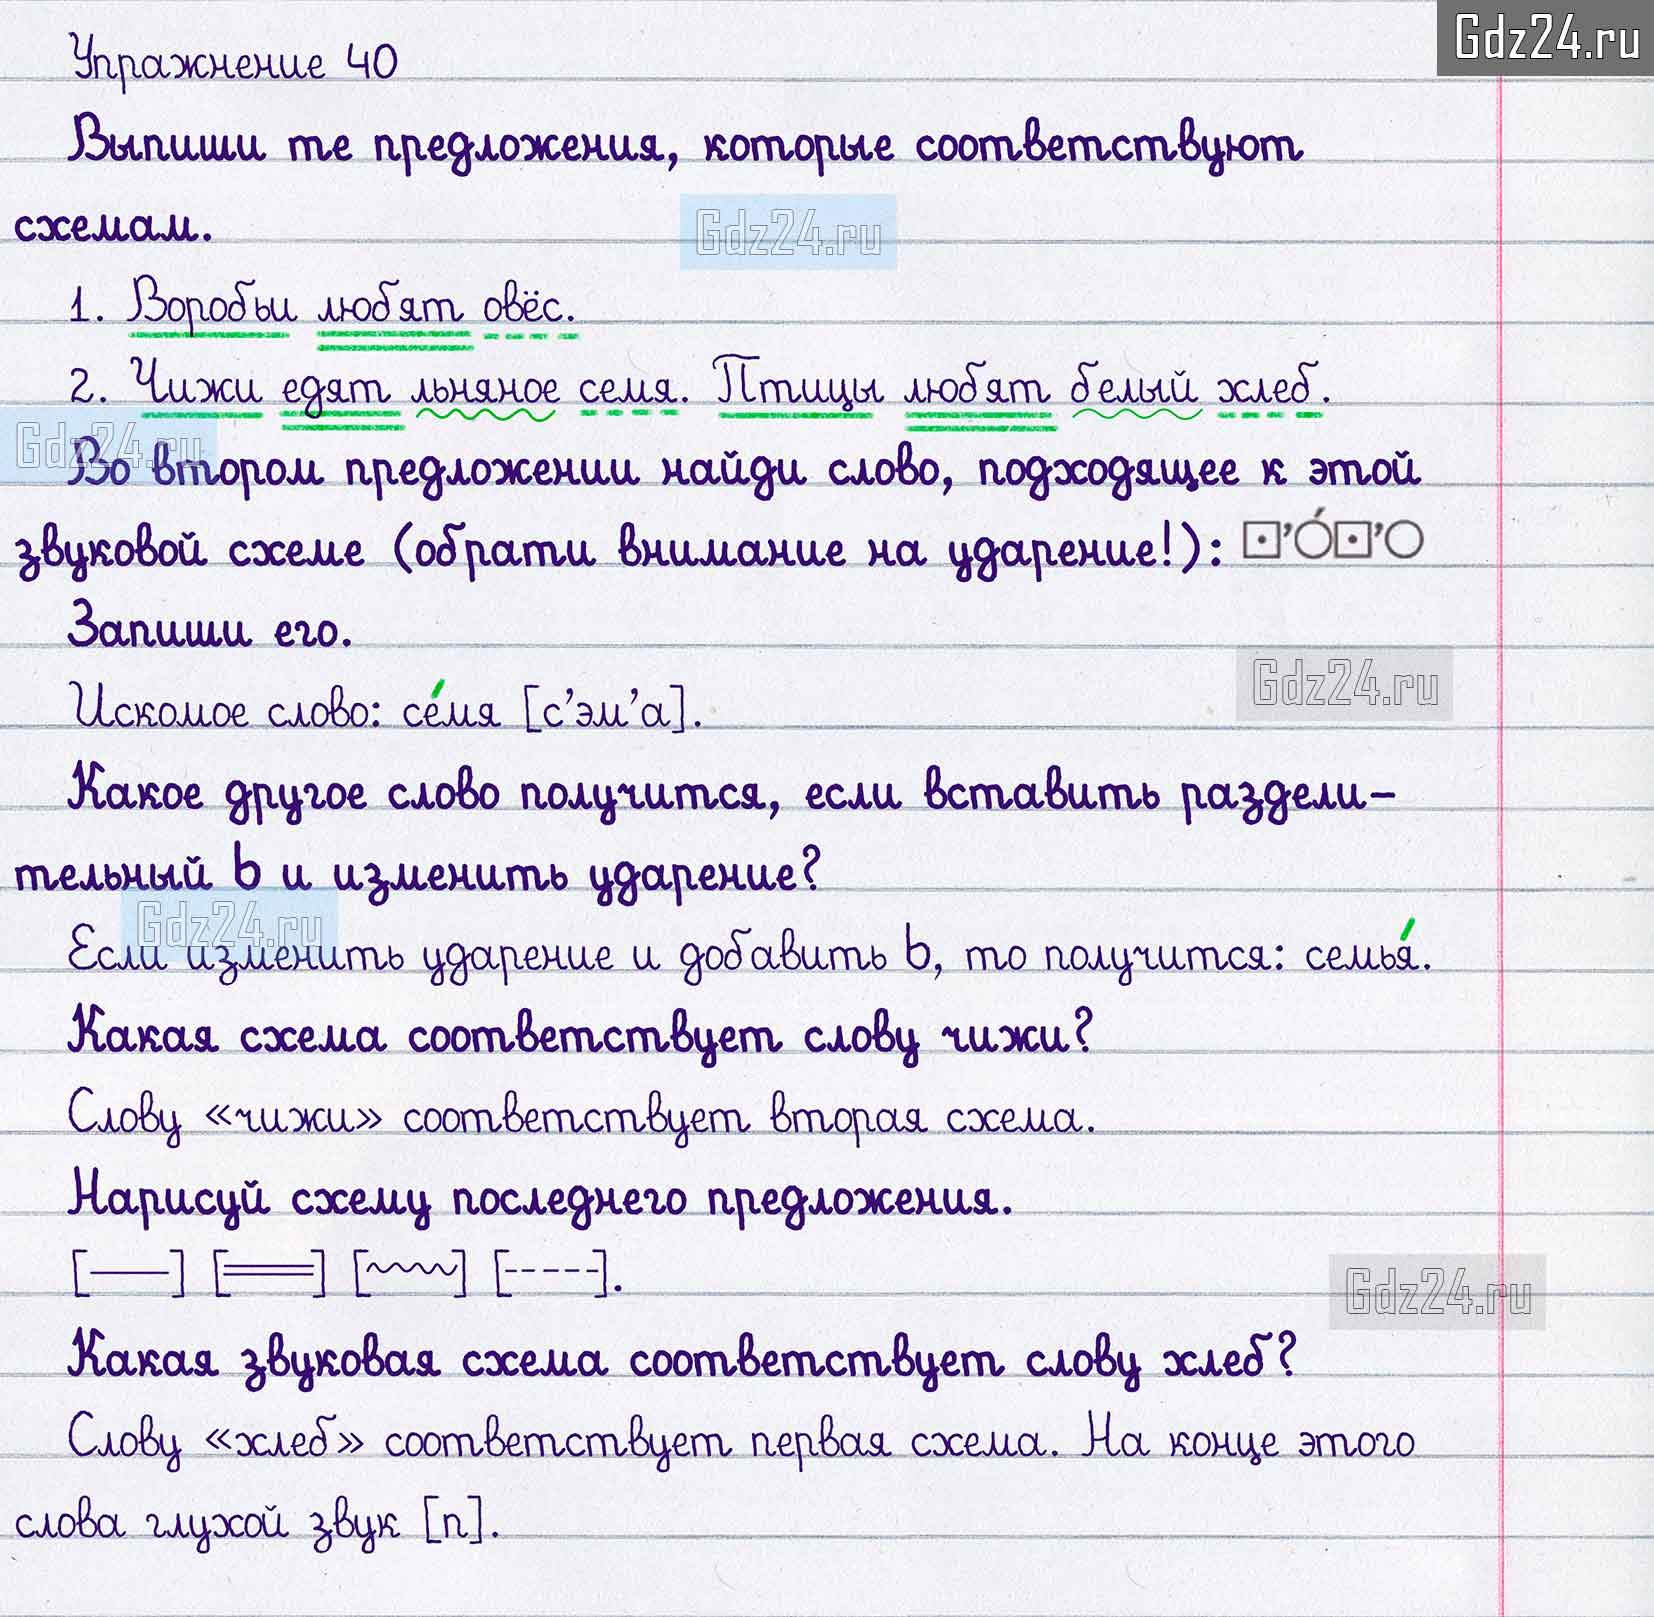 Gdz24.ru
Упражнение 40
Выпиши те предложения, которые соответствуют
схемам.
Gdz24.ru
1. Воробьи любят овёс.
2. Чижи едят льняное семя. Птицы любят белый хлеб.
Gdz24.ru
Во втором предложении найди слово, подходящее к этой
звуковой схеме (обрати внимание на ударение!):
Запиши его.
Gdz24.ru
Искомое слово: се́мя [с’эм’а].
Какое другое слово получится, если вставить раздели-
тельный ь и изменить ударение?
Gdz24.ru
Если изменить ударение и добавить ь, то получится: семья́.
Какая схема соответствует слову чижи?
Слову «чижи» соответствует вторая схема.
Нарисуй схему последнего предложения.
Gdz24.ru
Какая звуковая схема соответствует слову хлеб?
Слову «хлеб» соответствует первая схема. На конце этого
слова глухой звук [п].